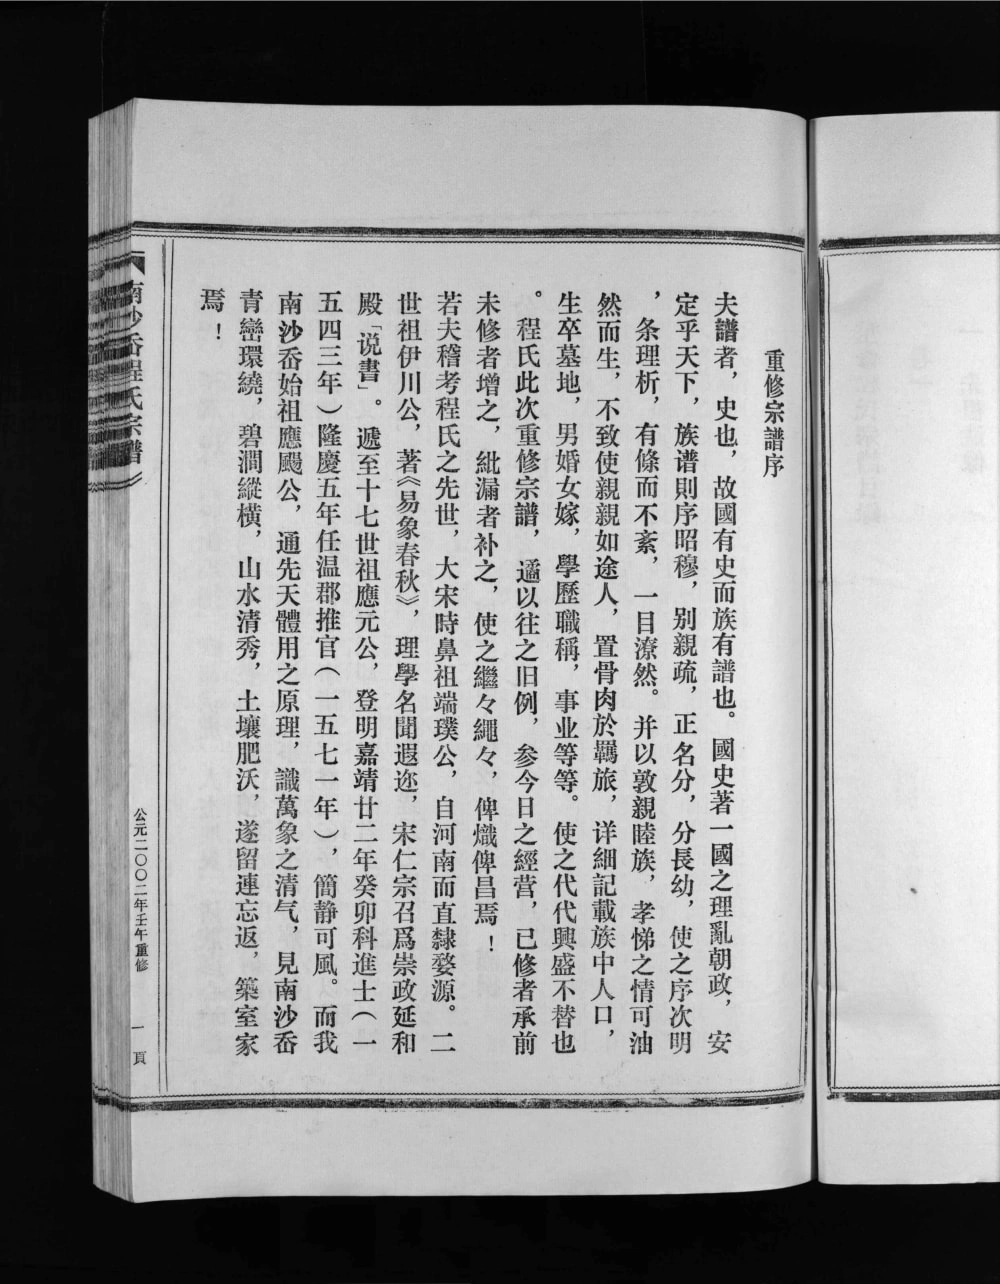 重修宗譜序
夫譜者，史也，故國有史而族有譜也。國史著一國之理亂朝政，安
定乎天下，族谱則序昭穆，别親疏，正名分，分長幼，使之序次明
，条理析，有條而不紊，一目潦然。并以敦親睦族，孝悌之情可油
然而生，不致使親親如途人，置骨肉於羈旅，详細記載族中人口，
生卒墓地，男婚女嫁，學歷職稱，事业等等。使之代代興盛不替也
。程氏此次重修宗譜，遹以往之旧例，参今日之經营，已修者承前
未修者增之，紕漏者补之，使之繼々繩々，俾熾俾昌焉！
若夫稽考程氏之先世，大宋時鼻祖端璞公，自河南而直隸婺源。二
世祖伊川公，著《易象春秋》，理學名聞遐迩，宋仁宗召爲崇政延和
殿「说書」。遞至十七世祖應元公，登明嘉靖廿二年癸卯科進士（一
五四三年）隆慶五年任温郡推官（一五七一年），簡静可風。而我
南沙岙始祖應颺公，通先天體用之原理，識萬象之清气，見南沙岙
青巒環繞，碧澗縱横，山水清秀，土壤肥沃，遂留連忘返，築室家
焉！
南沙岙程氏宗譜
公元二〇〇二年壬午重修
一頁